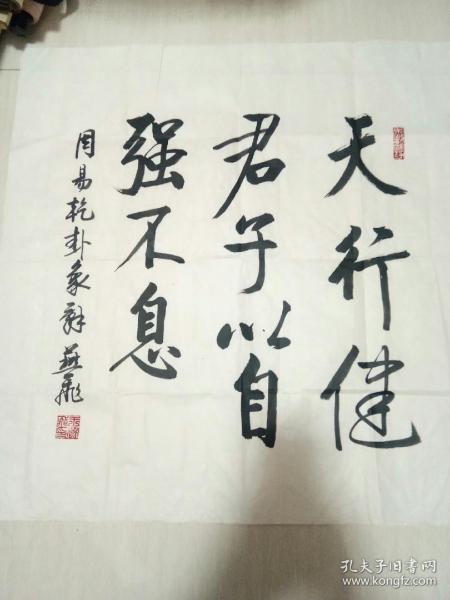 天行健
君子以自
强不息
周易乾卦象辞
孔夫子旧书网
www.kongfz.com